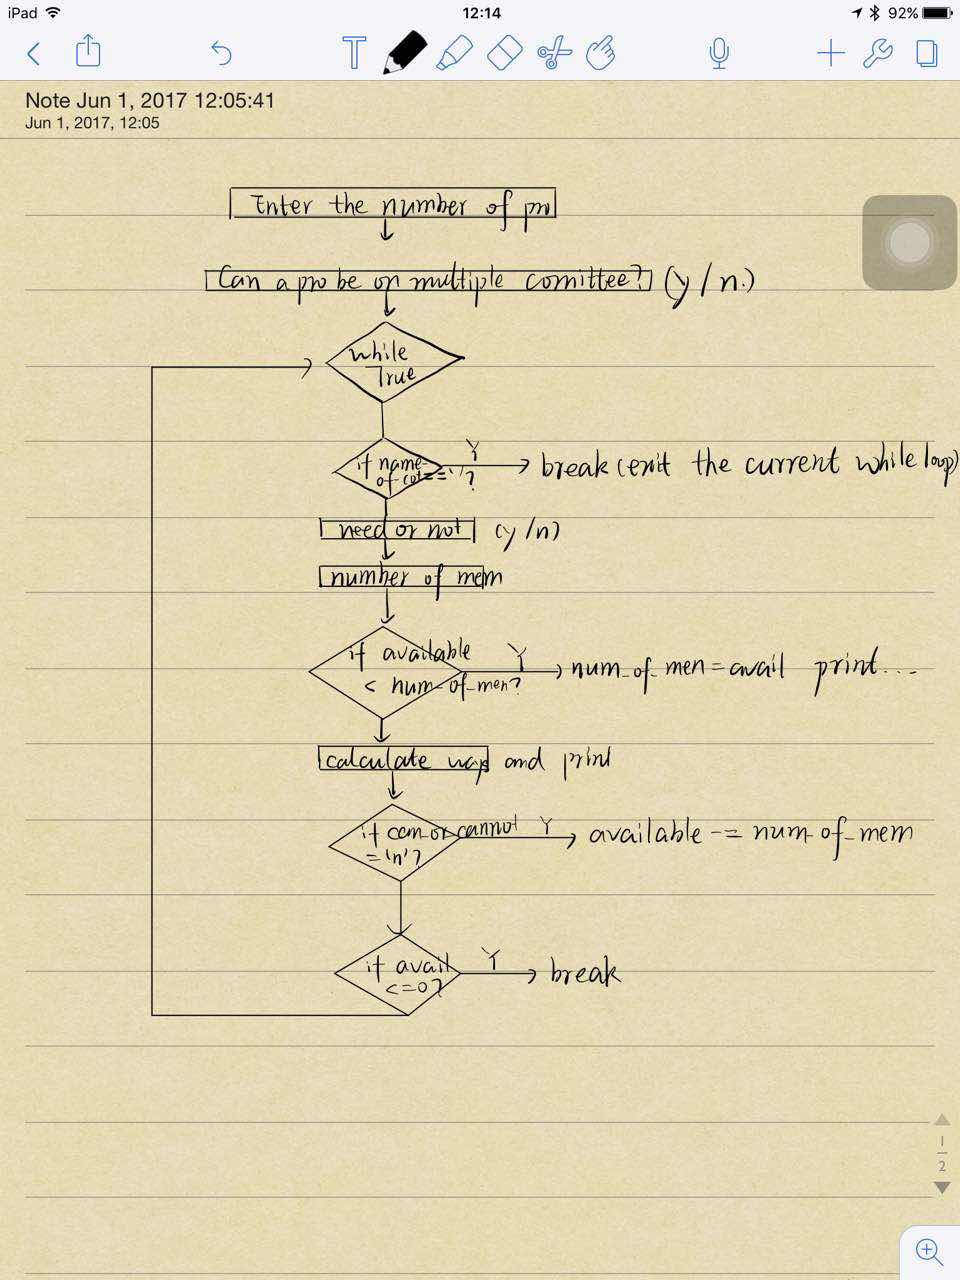 iPad 12:14 92%
Note Jun 1, 2017 12:05:41
Jun 1, 2017, 12:05
Enter the number of pro
Can a pro be on multiple comittee? (y/n.)
while
True
if name-
of-co ==''? Y break (exit the current while loop)
need or not (y/n)
number of mem
if available
< num-of-men? Y num_of_men = avail print...
calculate ways and print
if can-or cannot Y available -= num-of-mem
='n'?
if avail Y break
<=0?
1
2